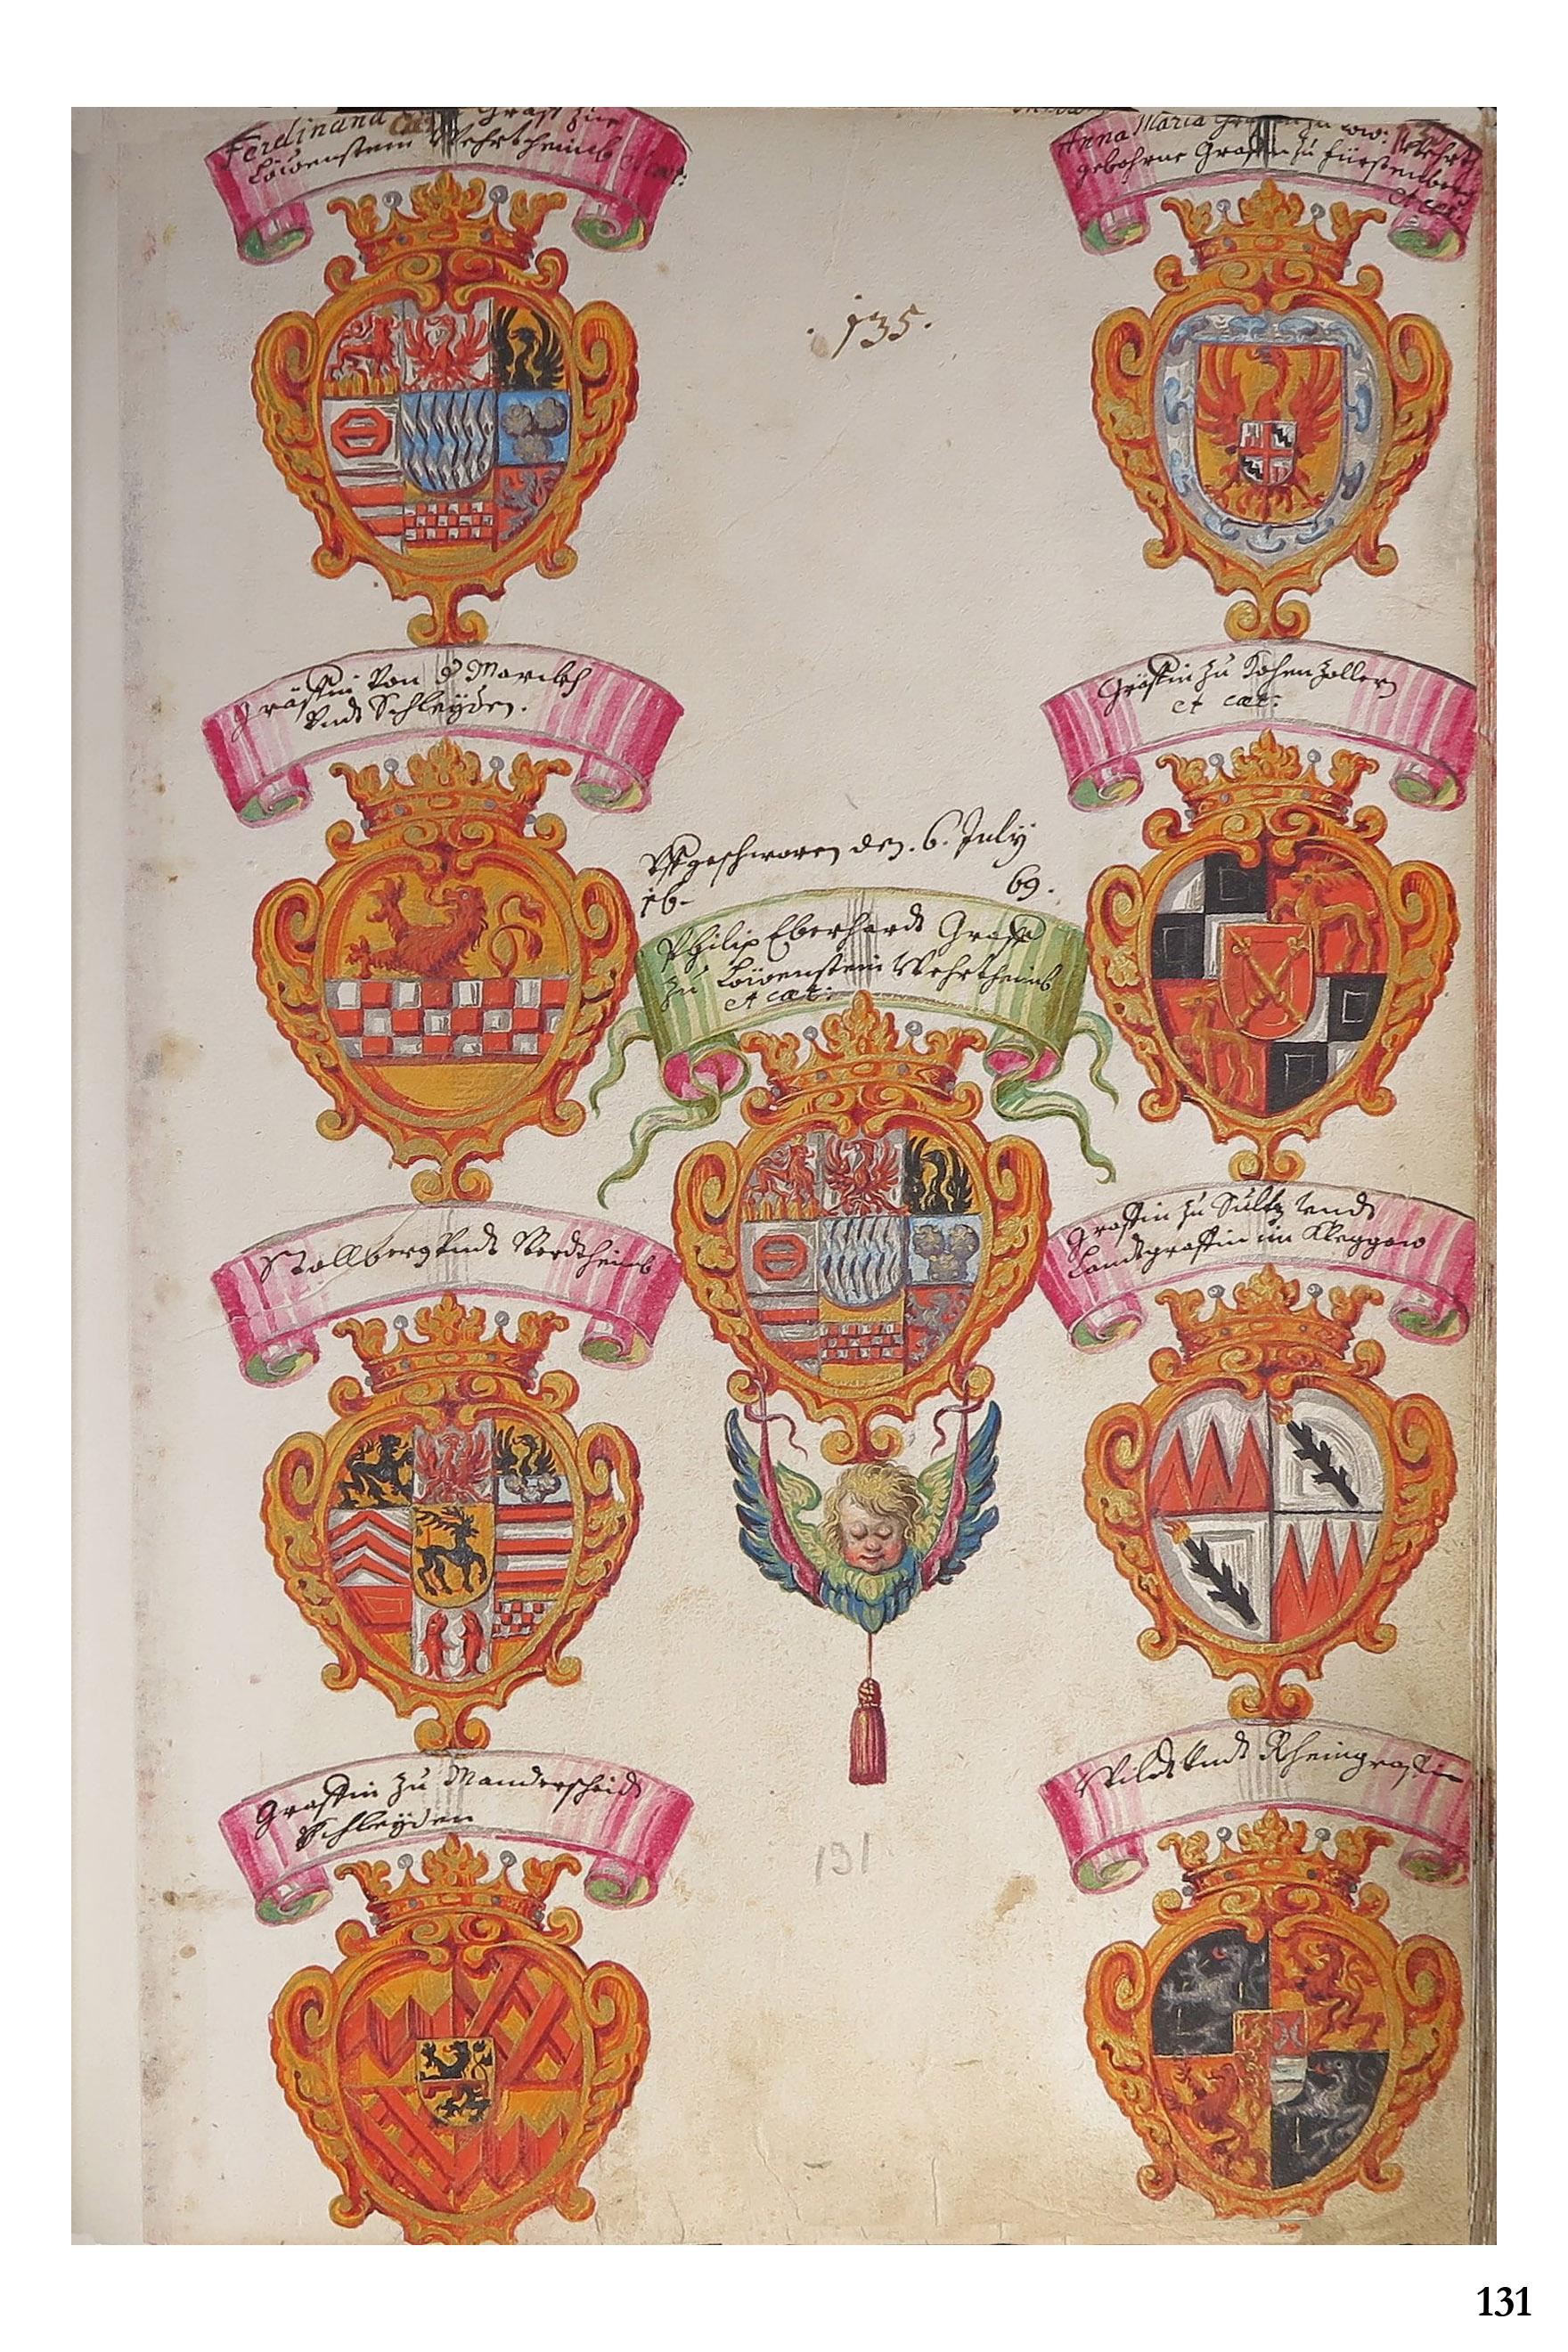 Ferdinand Carl Graff zue
Löwenstein Wehrtheimb et cæt:
Anna Maria Gräffin zu Löw: Wehrth
gebohrne Graffin zu Fürstenberg
et cæt:
135.
gräffin Von d Marckh
Vndt Schleÿden.
Gräffin zu Hohenzollern
et cæt:
Vffgeschworen den. 6. Julÿ
16- 69.
Philip Eberhardt Graff
zu Löwenstein Wehrtheimb
et cæt:
Stollberg Vndt Werdtheimb
Gräffin zu Sultz Vndt
Landtgräffin im Kleggow
Graffin zu Manderscheid
Schleÿden
Wildt Vndt Rheingraffin
131
131